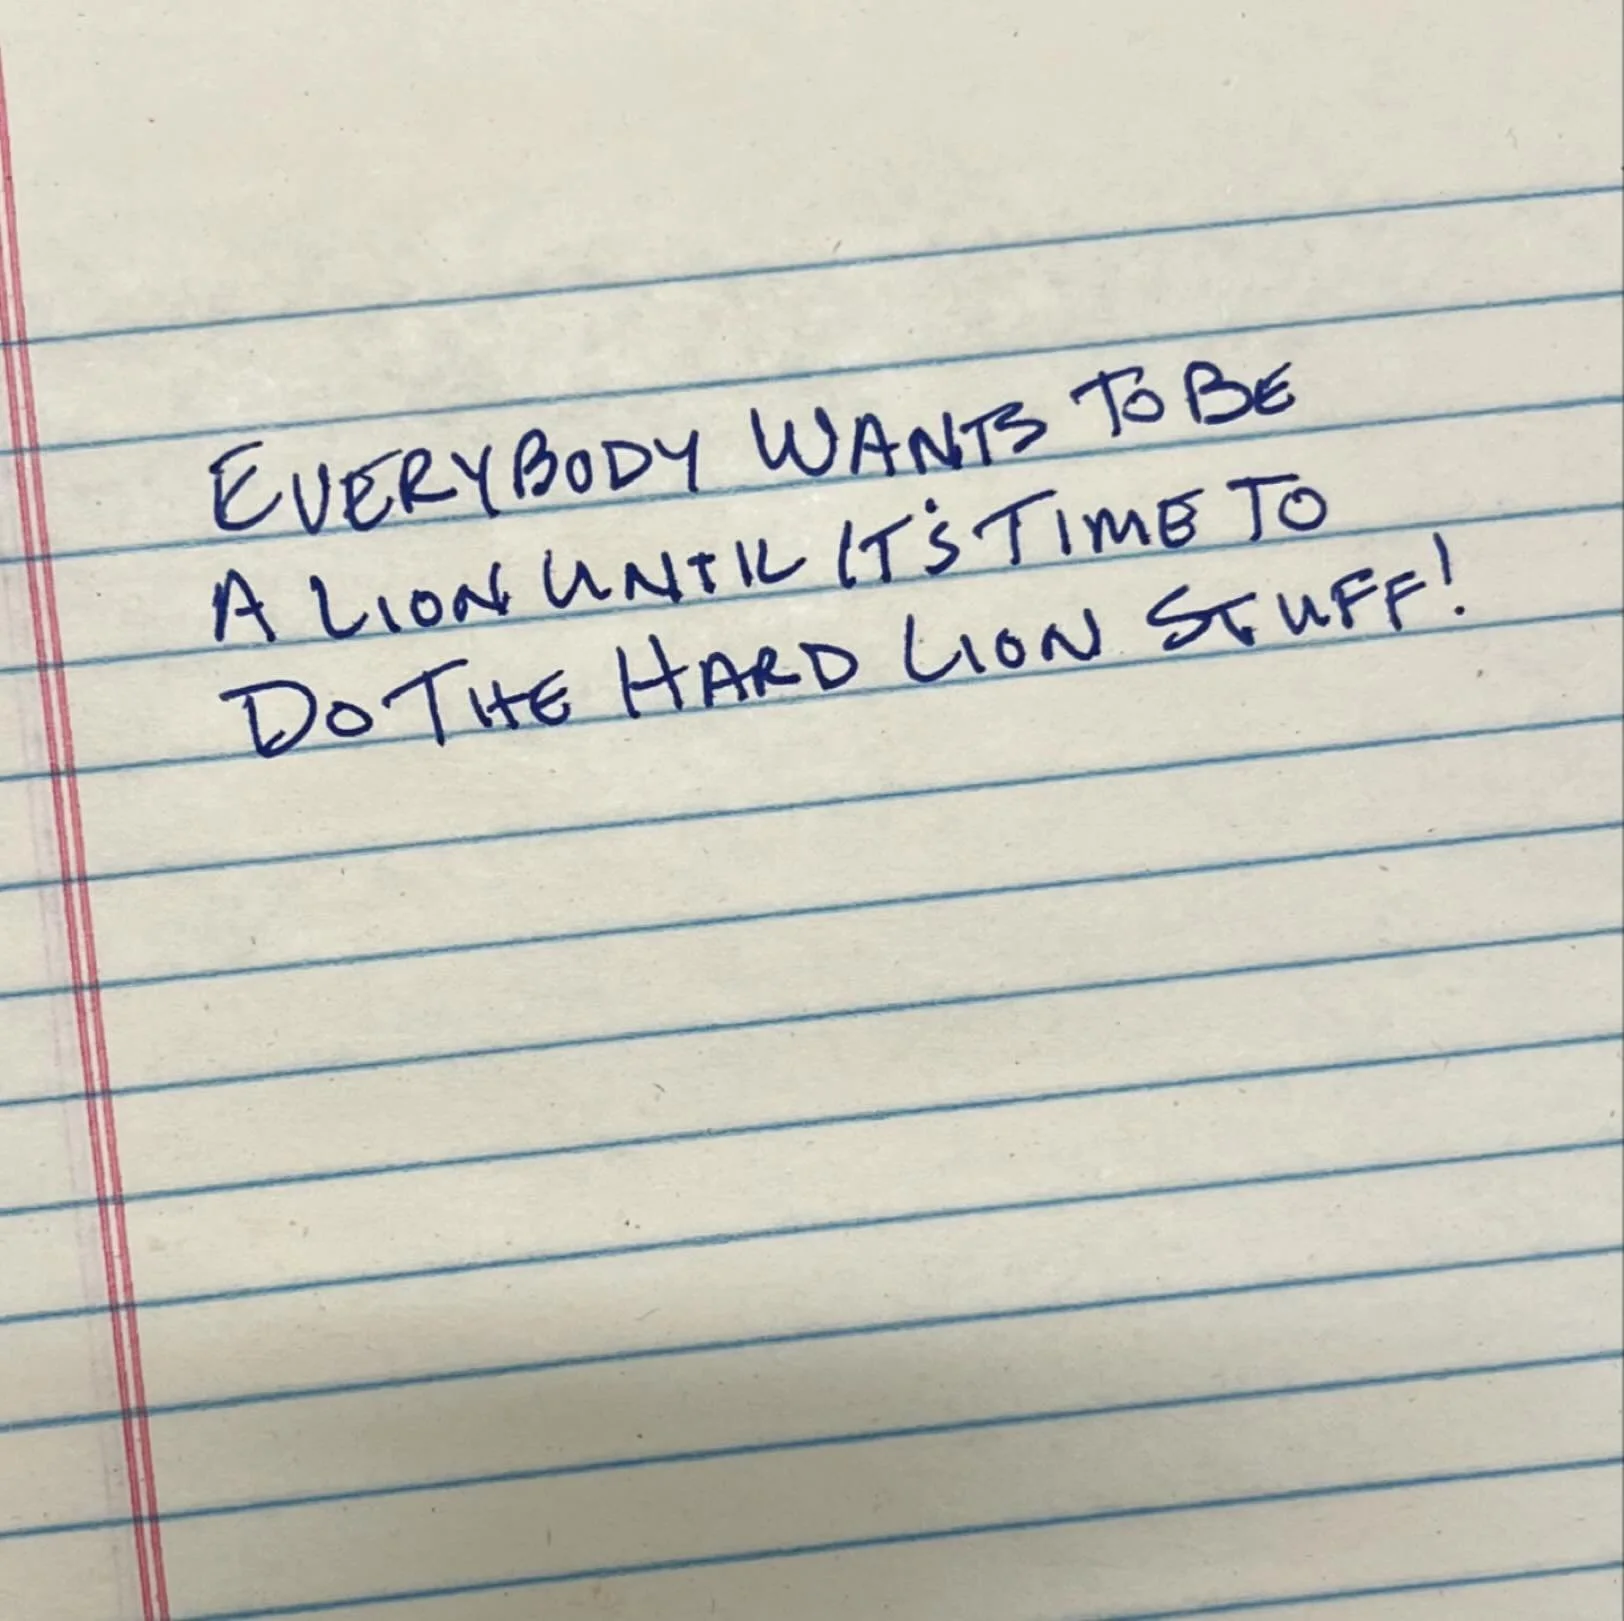 EVERYBODY WANTS TO BE
A LION UNTIL IT'S TIME TO
DO THE HARD LION STUFF!